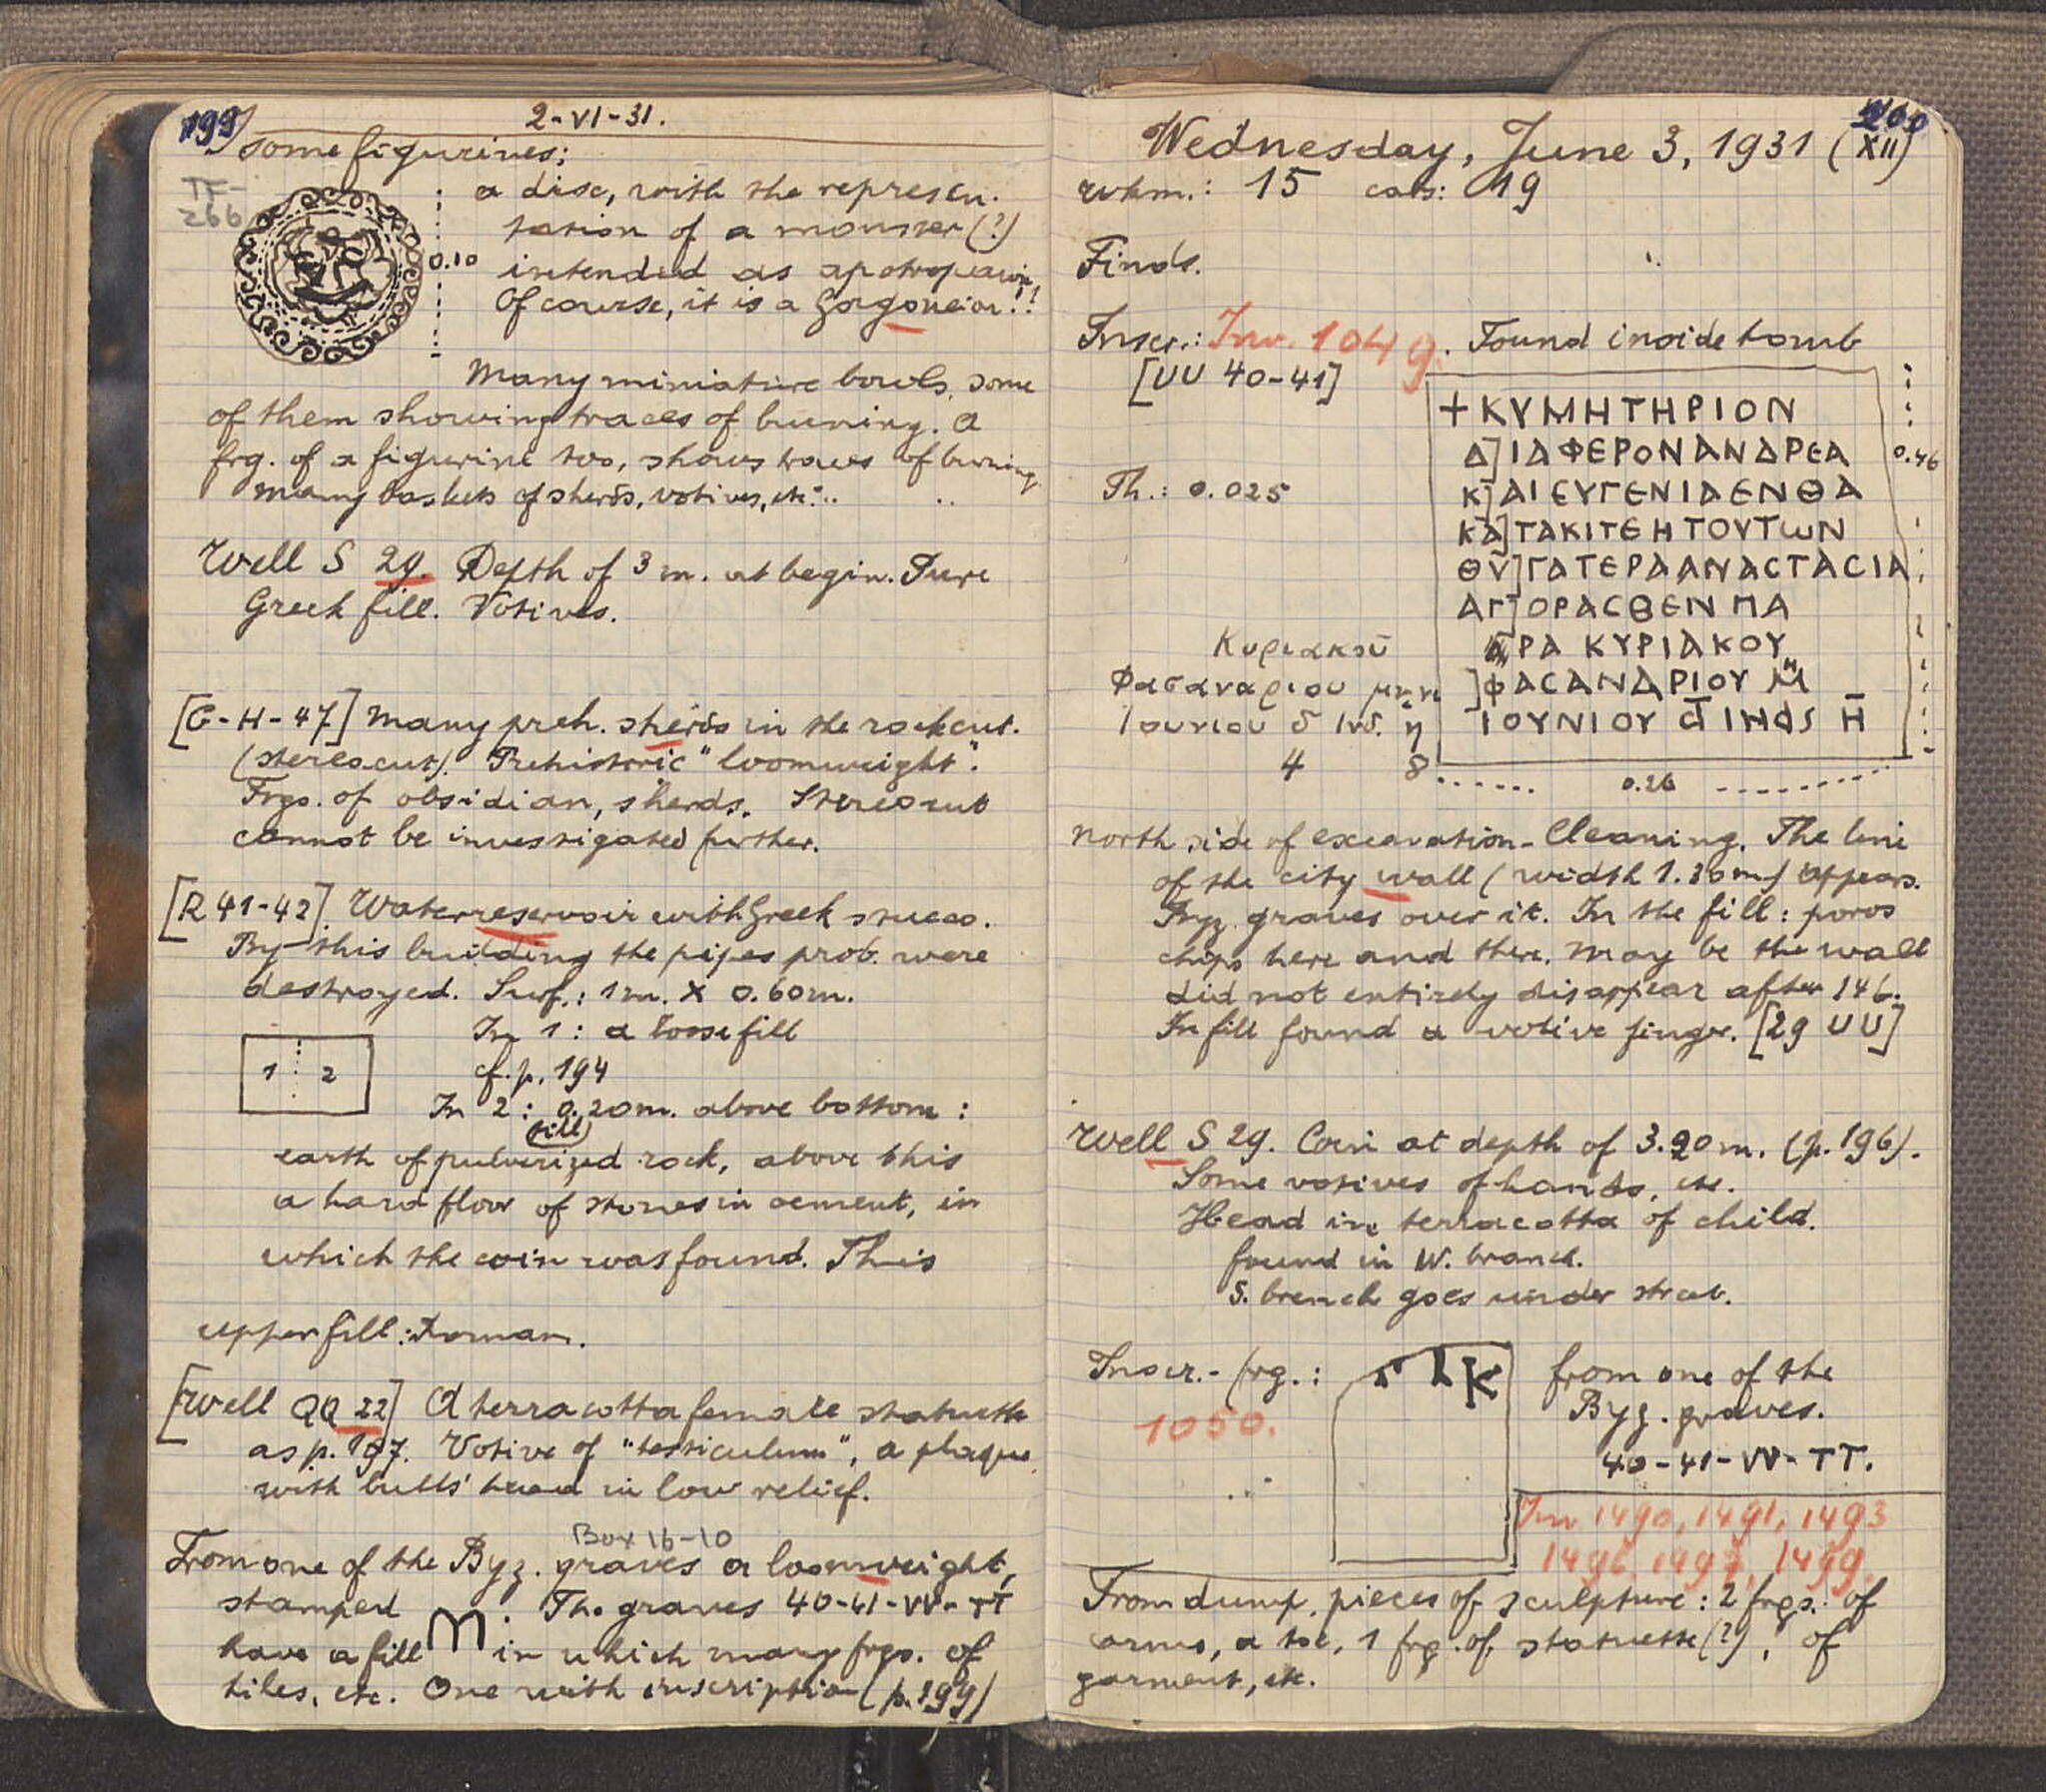 199
2-VI-31.
some figurines;
TF-
266
a disc, with the represen-
tation of a monster (?)
0.10
intended as apotropaic
Of course, it is a Gorgoneion!!
Many miniature bowls, some
of them showing traces of burning. A
frg. of a figurine too, shows traces of burning
many baskets of sherds, votives, etc.
Well S 29. Depth of 3 m. at begin. Pure
Greek fill. Votives.
[G-H-47] Many preh. sherds in the rockcut.
(stereocut). Prehistoric "loomweight".
Frgs. of obsidian, sherds. Stereocut
cannot be investigated further.
[R 41-42] Waterreservoir with Greek stucco.
By this building the pipes prob. were
destroyed. Surf.: 1 m. X 0.60 m.
In 1: a loose fill
1 2
cf. p. 194
In 2: 0.20 m. above bottom:
fill
earth of pulverized rock, above this
a hard floor of stones in cement, in
which the coin was found. This
upper fill: Roman.
[Well QQ 22] A terracotta female statuette
as p. 197. Votive of "testiculum", a plaque
with bulls' head in low relief.
Box 16-10
From one of the Byz. graves a loomweight,
stamped M. The graves 40-41-VV-TT
have a fill in which many frgs. of
tiles, etc. One with inscription (p. 199)
200
Wednesday, June 3, 1931 (XII)
wkm.: 15 cars: 19
Finds.
Inscr.: Inv. 1049. Found inside tomb
[UU 40-41]
+ΚΥΜΗΤΗΡΙΟΝ
Δ]ΙΑΦΕΡΟΝΑΝΔΡΕΑ
0.46
Κ]ΑΙΕΥΓΕΝΙΑΕΝΘΑ
Th.: 0.025
ΚΑ]ΤΑΚΙΤΕΗΤΟΥΤωΝ
ΘΥ]ΓΑΤΕΡΑΑΝΑCΤΑCΙΑ
ΑΓ]ΟΡΑCΘΕΝ ΠΑ
Κυριακοῦ
ΡΑ ΚΥΡΙΑΚΟΥ
Φασαναριου μηνι
]ΦΑCΑΝΔΡΙΟΥ Μ̈
Ιουνιου δ Ινδ. η
ΙΟΥΝΙΟΥ Δ̅ ΙΝΔS Η̅
4 8
0.26
North side of excavation - Cleaning. The line
of the city wall (width 1.30 m) appears.
Byz. graves over it. In the fill: poros
chips here and there. May be the wall
did not entirely disappear after 146.
In fill found a votive finger. [29 UU]
Well S 29. Coin at depth of 3.20 m. (p. 196).
Some votives of hands, etc.
Head in terracotta of child.
found in W. branch.
S. branch goes under street.
Inscr.- frg.:
Κ
from one of the
1050.
Byz. graves.
40-41-VV-TT.
Inv 1490, 1491, 1493
1496, 1497, 1499.
From dump, pieces of sculpture: 2 frgs. of
arms, a toe, 1 frg. of statuette (?), of
garment, etc.